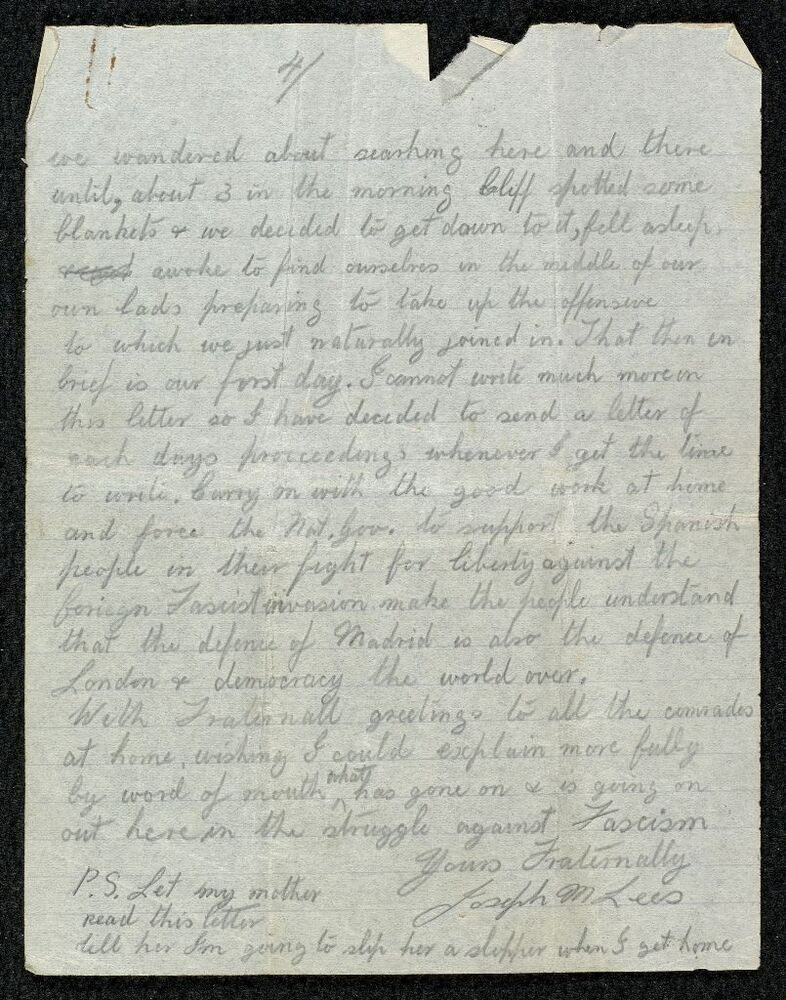 4/
we wandered about searhing here and there
until, about 3 in the morning Cliff spotted some
blankets & we decided to get down to it, fell asleep,
awoke to find ourselves in the middle of our
own lads preparing to take up the offensive
to which we just naturally joined in. That then in
brief is our first day. I cannot write much more in
this letter so I have decided to send a letter of
each days procceedings whenever I get the time
to write. Carry on with the good work at home
and force the Nat. Gov. to support the Spanish
people in their fight for liberty against the
foriegn Fascist invasion make the people understand
that the defence of Madrid is also the defence of
London & democracy the world over.
With Fraternall greetings to all the comrades
at home, wishing I could explain more fully
by word of mouth what has gone on & is going on
out here in the struggle against Fascism
Yours Fraternally
Joseph M Lees
P.S. Let my mother
read this letter
tell her I'm going to slip her a slipper when I get home